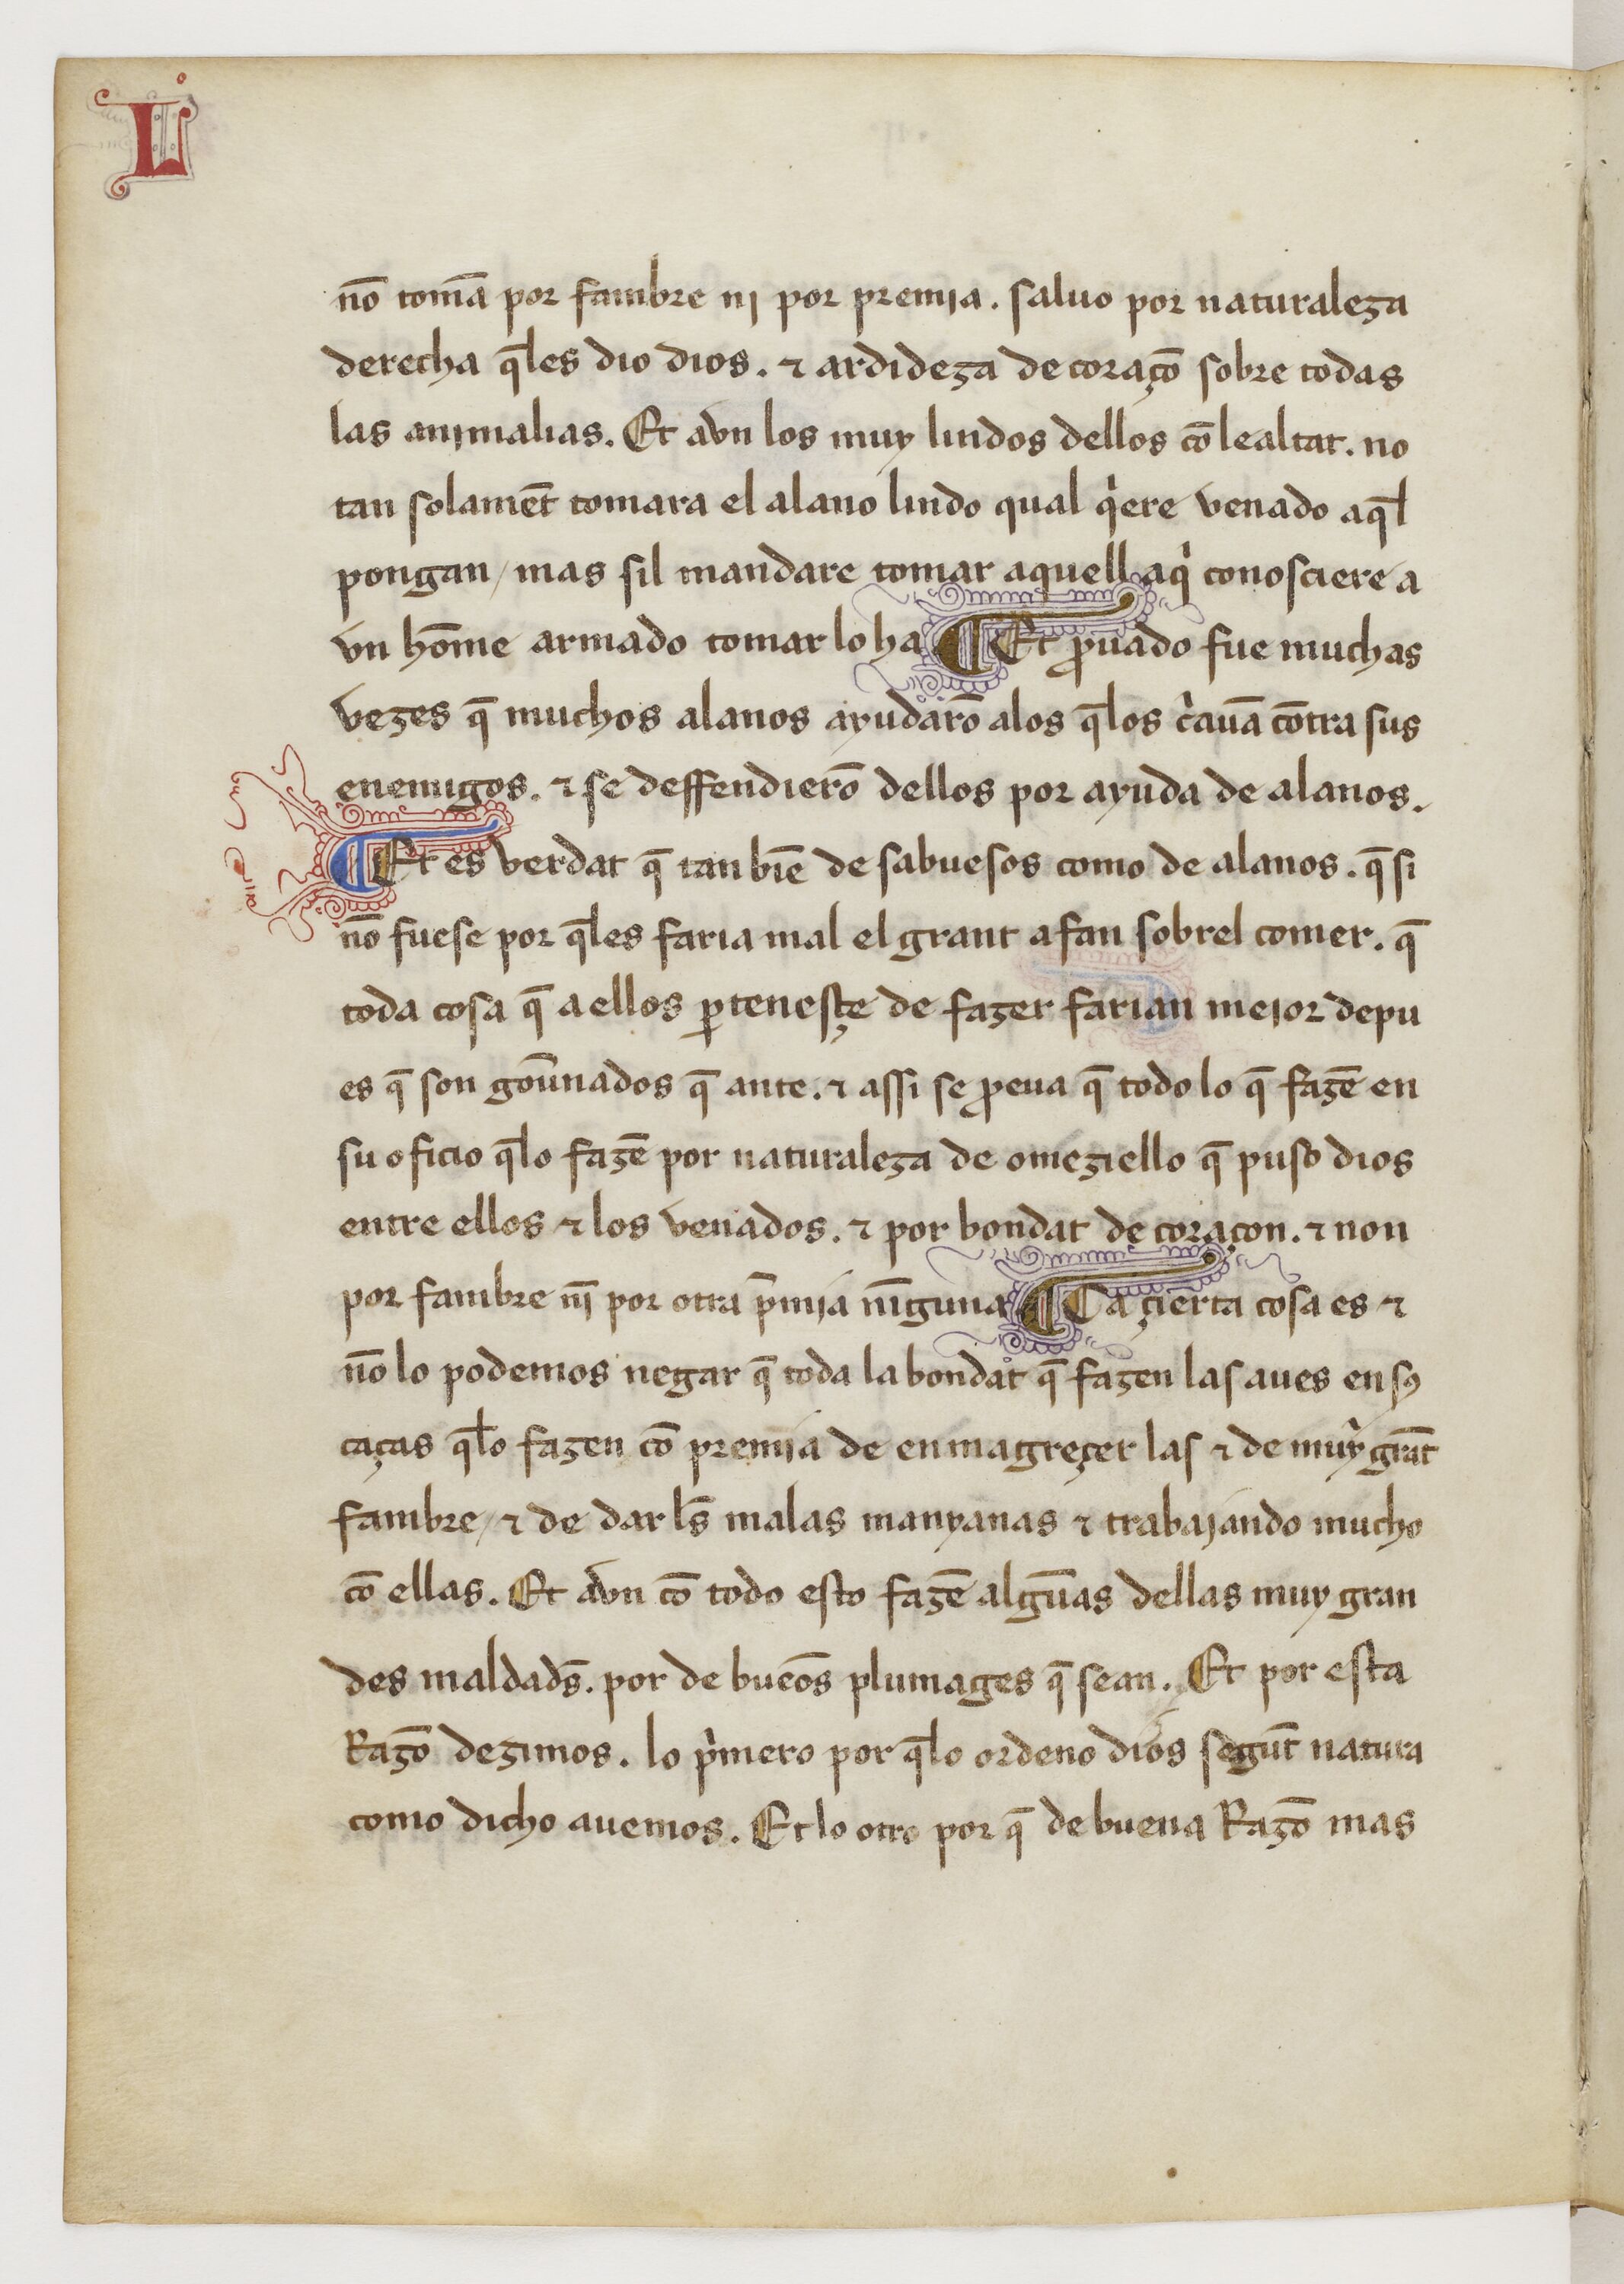 L
nō tomā por fambre nj por premia. saluo por naturaleza
derecha q̄les dio dios. ⁊ ardideza de coraçō sobre todas
las animalias. Et avn los muy lindos dellos cō lealtat. no
tan solamēt tomara el alano lindo qual qͥere venado aq̄l
pongan / mas sil mandare tomar aquell aqͥ conosciere a
vn hōme armado tomar lo ha ¶ Et ꝓuado fue muchas
vezes q̄ muchos alanos ayudarō alos q̄los cͥauā cōtra sus
enemigos. ⁊ se deffendierō dellos por ayuda de alanos.
¶ Et es verdat q̄ tan biē de sabuesos como de alanos. q̄ si
nō fuese por q̄les faria mal el grant afan sobrel comer. q̄
toda cosa q̄ a ellos ꝑtenesçe de fazer farian meior depu
es q̄ son gou̅nados q̄ ante. ⁊ assi se ꝓeua q̄ todo lo q̄ fazē en
su oficio q̄lo fazē por naturaleza de omeziello q̄ puso dios
entre ellos ⁊ los venados. ⁊ por bondat de coraçon. ⁊ non
por fambre nj̄ por otra p̄mia nīguna ¶ Ca çierta cosa es ⁊
nō lo podemos negar q̄ toda la bondat q̄ fazen las aues en sꝯ
caças q̄lo fazen cō premia de enmagreçer las ⁊ de muy grāt
fambre / ⁊ de dar ls̄ malas manyanas ⁊ trabaiando mucho
cō ellas. Et avn cō todo esto fazē algūas dellas muy gran
des maldads̄. por de bueōs plumages q̄ sean. Et por esta
Razō dezimos. lo pͥmero por q̄lo ordeno dios segūt natura
como dicho auemos. Et lo otro por q̄ de buena Razō mas